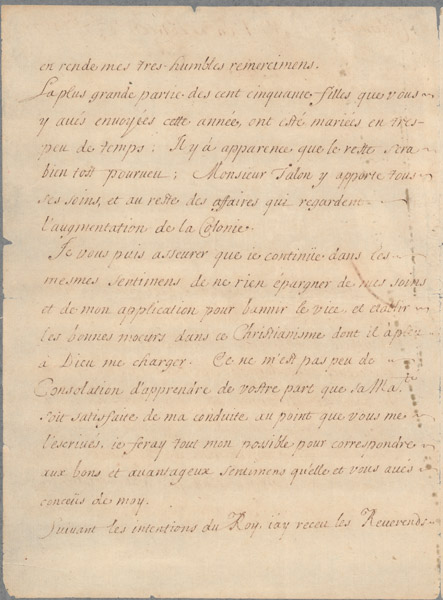 en rende mes tres-humbles remercimens.
La plus grande partie des cent cinquante filles que vous
y aués enuoyées cette année, ont esté mariées en tres-
peu de temps: Il y à apparence que le reste sera
bien tost pourueu; Monsieur Talon y apporte tous
ses soins, et au reste des affaires qui regardent
l'augmentation de la Colonie.
Je vous puis asseurer que ie continüe dans les
mesmes sentimens de ne rien épargner de mes soins
et de mon application pour bannir le vice et établir
les bonnes moeurs dans ce Christianisme dont il à pleu
à Dieu me charger. Ce ne m'est pas peu de
Consolation d'apprendre de vostre part que sa Ma.te
soit satisfaite de ma conduite au point que vous me
l'escriués, ie feray tout mon possible pour correspondre
aux bons et auantageux sentimens qu'elle et vous aués
conceüs de moy.
Suiuant les intentions du Roy, i'ay receu les Reuerends